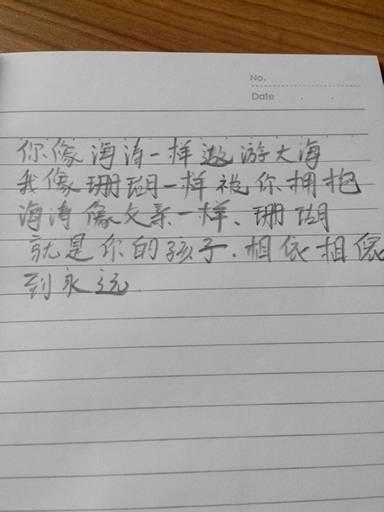 No.
Date
你像海涛一样遨游大海
我像珊瑚一样被你拥抱
海涛像父亲一样、珊瑚
就是你的孩子.相依相偎
到永远.